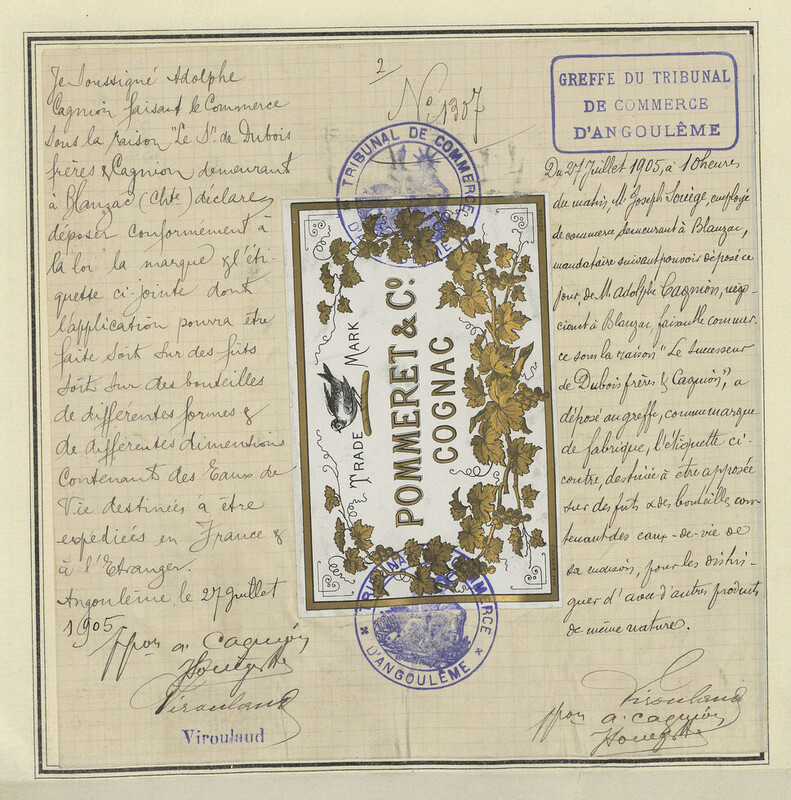 Je soussigné Adolphe
Cagnion faisant le Commerce
sous la raison "Le Sr de Dubois
frères & Cagnion demeurant
à Blanzac (Chte) déclare
déposer conformement à
la loi la marque & l'éti-
quette ci-jointe dont
l'application pourra être
faite soit sur des fûts
soit sur des bouteilles
de différentes formes &
de différentes dimensions
Contenant des Eaux de
Vie destinées à être
expédiées en France &
à l'Etranger.
Angoulême, le 27 Juillet
1905
ppon a. Cagnion
Virouland
Virouland
2
No 1307
TRIBUNAL DE COMMERCE
D'ANGOULÊME
TRADE MARK
POMMERET & Co.
COGNAC
TRIBUNAL DE COMMERCE
D'ANGOULÊME
GREFFE DU TRIBUNAL
DE COMMERCE
D'ANGOULÊME
Du 27 Juillet 1905, à 10 heures
du matin, M. Joseph employé
de commerce demeurant à Blanzac,
mandataire suivant pouvoir déposé ce
jour, de M. Adolphe Cagnion, négo-
ciant à Blanzac, faisant le commer-
ce sous la raison "Le successeur
de Dubois frères & Cagnion", a
déposé au greffe, comme marque
de fabrique, l'étiquette ci-
contre, destinée à être apposée
sur des fûts & des bouteilles con-
tenant des eaux-de-vie de
sa maison, pour les distin-
guer d'avec d'autres produits
de même nature.
Virouland
ppon a. Cagnion